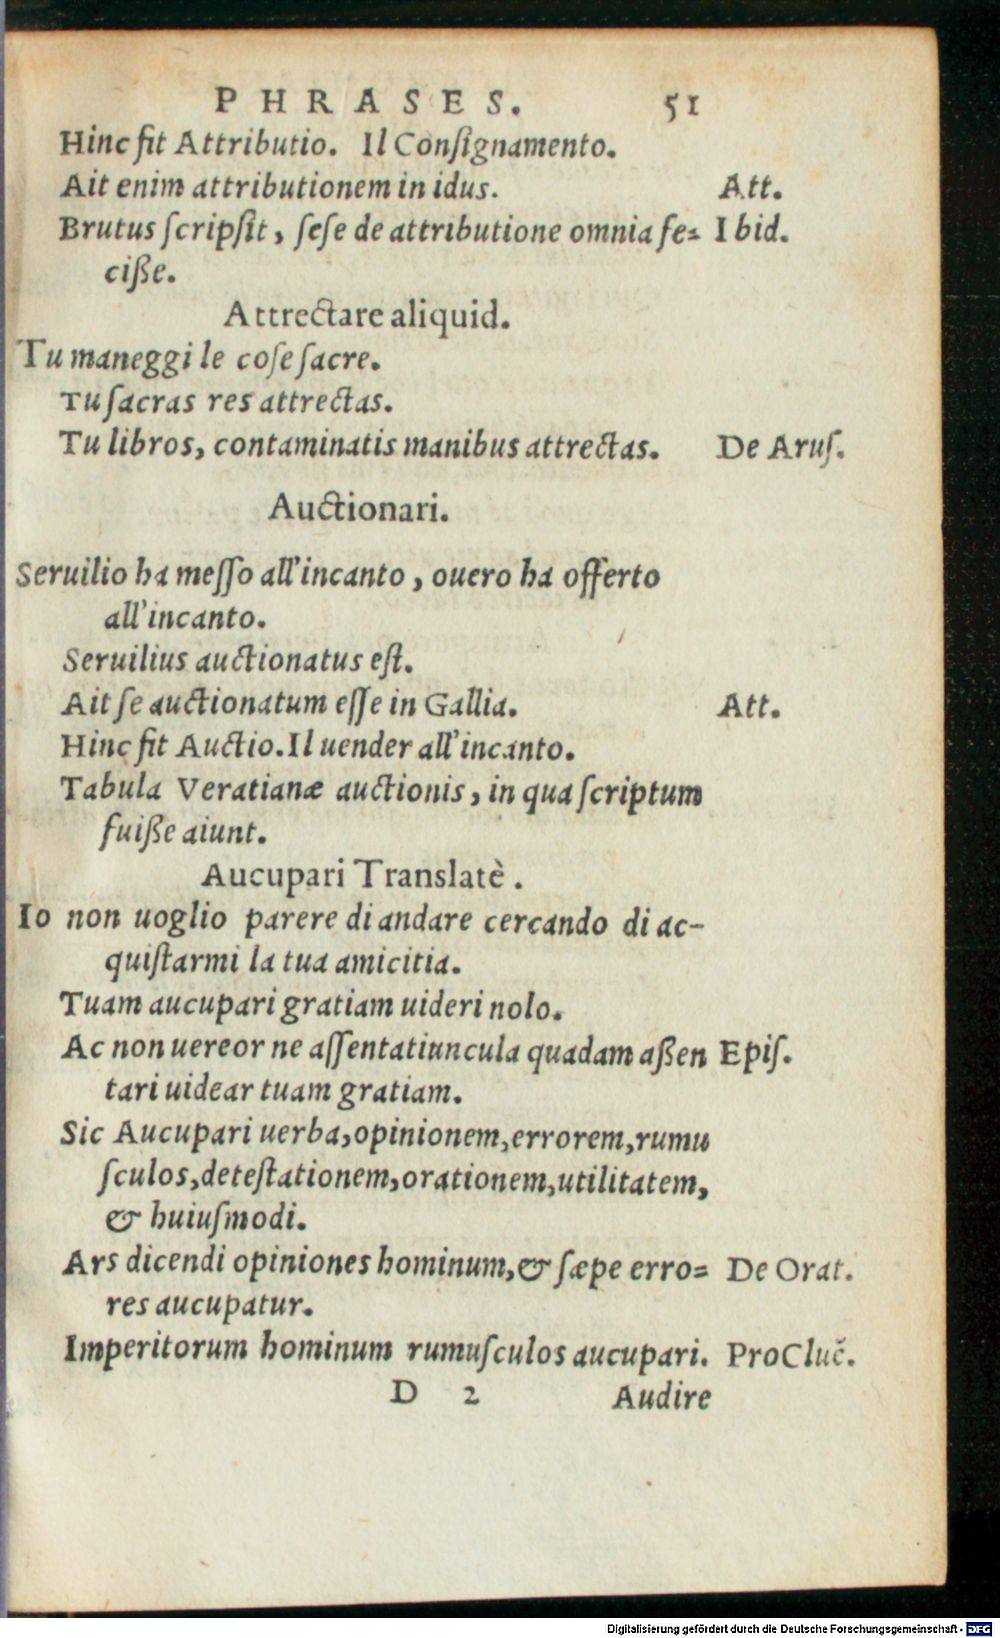 PHRASES. 51
Hinc fit Attributio. Il Conſignamento.
Ait enim attributionem in idus. Att.
Brutus ſcripſit, ſeſe de attributione omnia fe= Ibid.
ciße.
Attrectare aliquid.
Tu maneggi le coſe ſacre.
Tu ſacras res attrectas.
Tu libros, contaminatis manibus attrectas. De Aruſ.
Auctionari.
Seruilio ha meſſo all'incanto, ouero ha offerto
all'incanto.
Seruilius auctionatus eſt.
Ait ſe auctionatum eſſe in Gallia. Att.
Hinc fit Auctio. Il uender all'incanto.
Tabula Veratianæ auctionis, in qua ſcriptum
fuiße aiunt.
Aucupari Translatè.
Io non uoglio parere di andare cercando di ac-
quiſtarmi la tua amicitia.
Tuam aucupari gratiam uideri nolo.
Ac non uereor ne aſſentatiuncula quadam aßen Epiſ.
tari uidear tuam gratiam.
Sic Aucupari uerba, opinionem, errorem, rumu
ſculos, deteſtationem, orationem, utilitatem,
& huiuſmodi.
Ars dicendi opiniones hominum, & ſæpe erro= De Orat.
res aucupatur.
Imperitorum hominum rumuſculos aucupari. Pro Cluē.
D 2 Audire
Digitalisierung gefördert durch die Deutsche Forschungsgemeinschaft - DFG